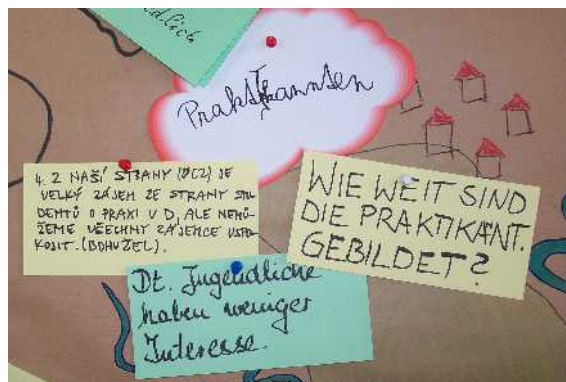 dlich
Praktikannten
4. Z NAŠÍ STRANY (DCZ) JE
VELKÝ ZÁJEM ZE STRANY STU
DENTŮ O PRAXI V D, ALE NEMŮ-
ŽEME VŠECHNY ZÁJEMCE USPO
KOJIT. (BOHUŽEL).
WIE WEIT SIND
DIE PRAKTIKANT.
GEBILDET?
Dt. Jugendliche
haben weniger
Interesse.